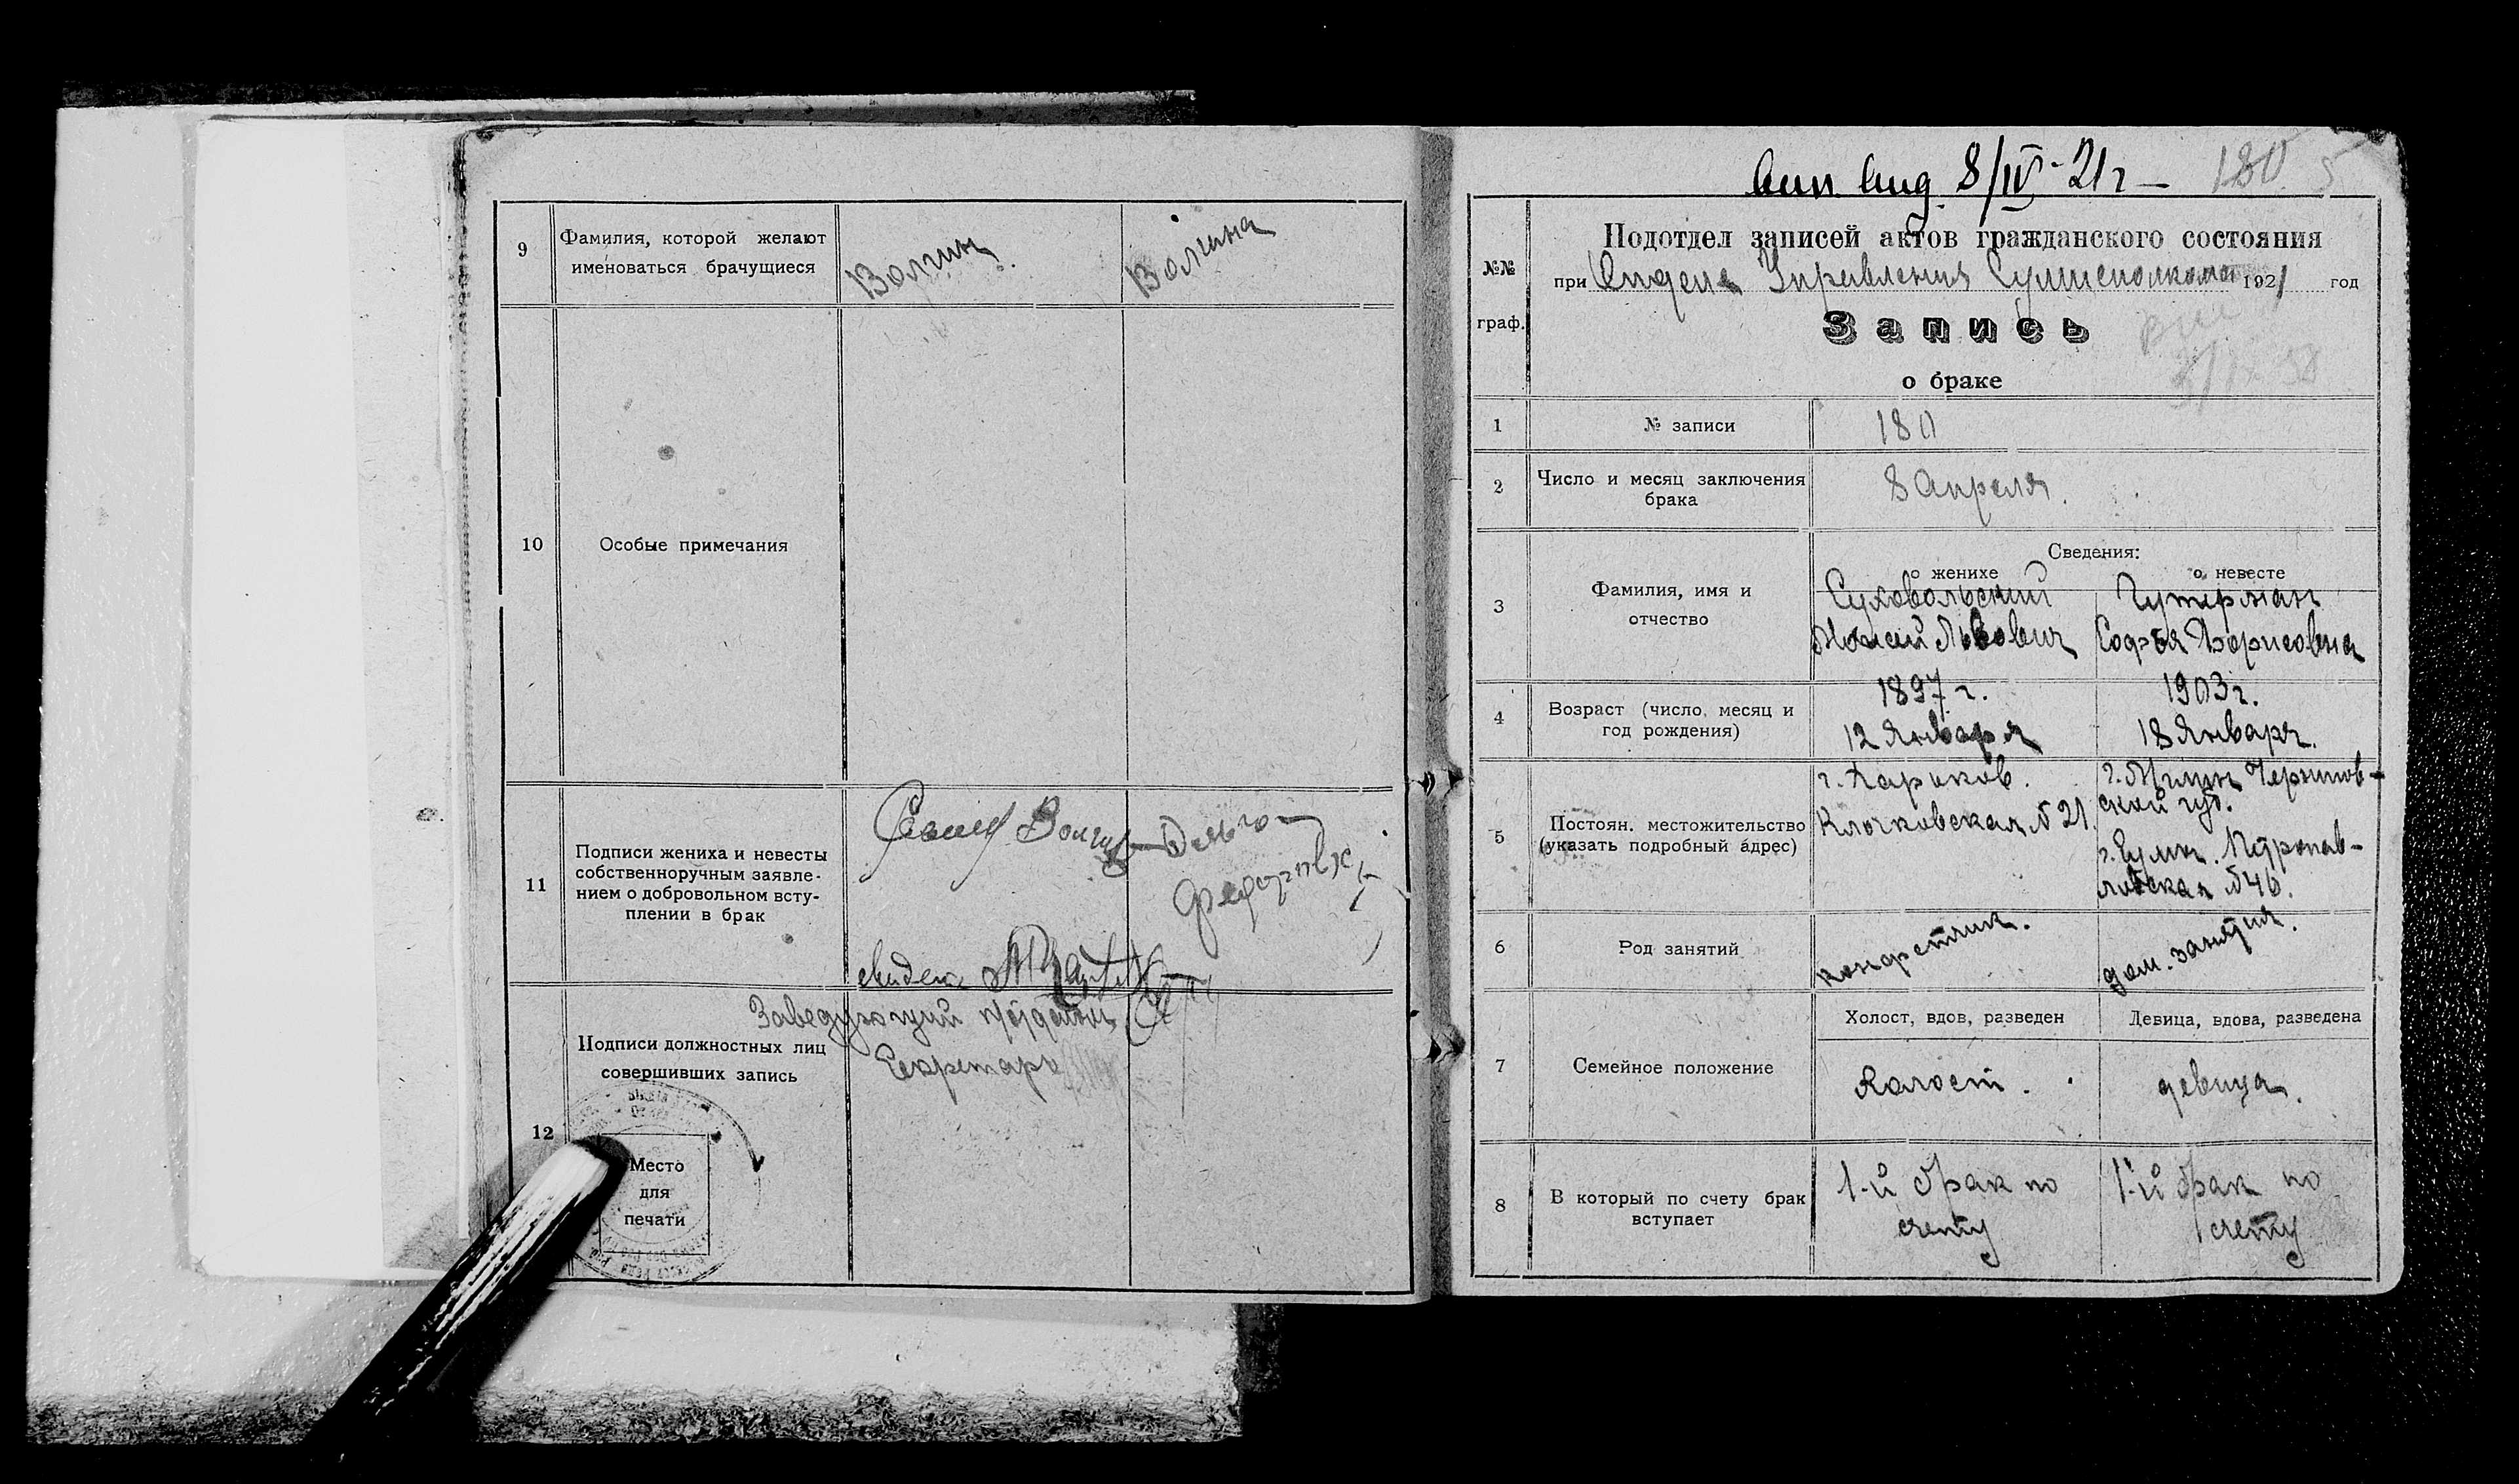 9
Фамилия, которой желают
именоваться брачущиеся
Волгин.
Волгина
10
Особые примечания
11
Подписи жениха и невесты
собственноручным заявле-
нием о добровольном всту-
плении в брак
Волгин
12
Подписи должностных лиц
совершивших запись
Заведующий
Секретарь
Место
для
печати
8/IV-21г —
180
5
№№
граф.
Подотдел записей актов гражданского состояния
при Отделе Управления 1921 год
Запись
о браке
1
№ записи
180
2
Число и месяц заключения
брака
8 Апреля.
3
Фамилия, имя и
отчество
Сведения:
о женихе
о невесте
Суховольский
Моисей Львович
Гутерман
Софья Борисовна
4
Возраст (число, месяц и
год рождения)
1897 г.
12 Января
1903 г.
18 Января.
5
Постоян. местожительство
(указать подробный адрес)
г. Харьков.
Клочковская № 21.
г. Мглин Чернигов-
ской губ.
г. Сумы. Петропав-
ловская № 46.
6
Род занятий
дом. занятия.
7
Семейное положение
Холост, вдов, разведен
Девица, вдова, разведена
Холост.
девица.
8
В который по счету брак
вступает
1-й брак по
счету
1-й брак по
счету